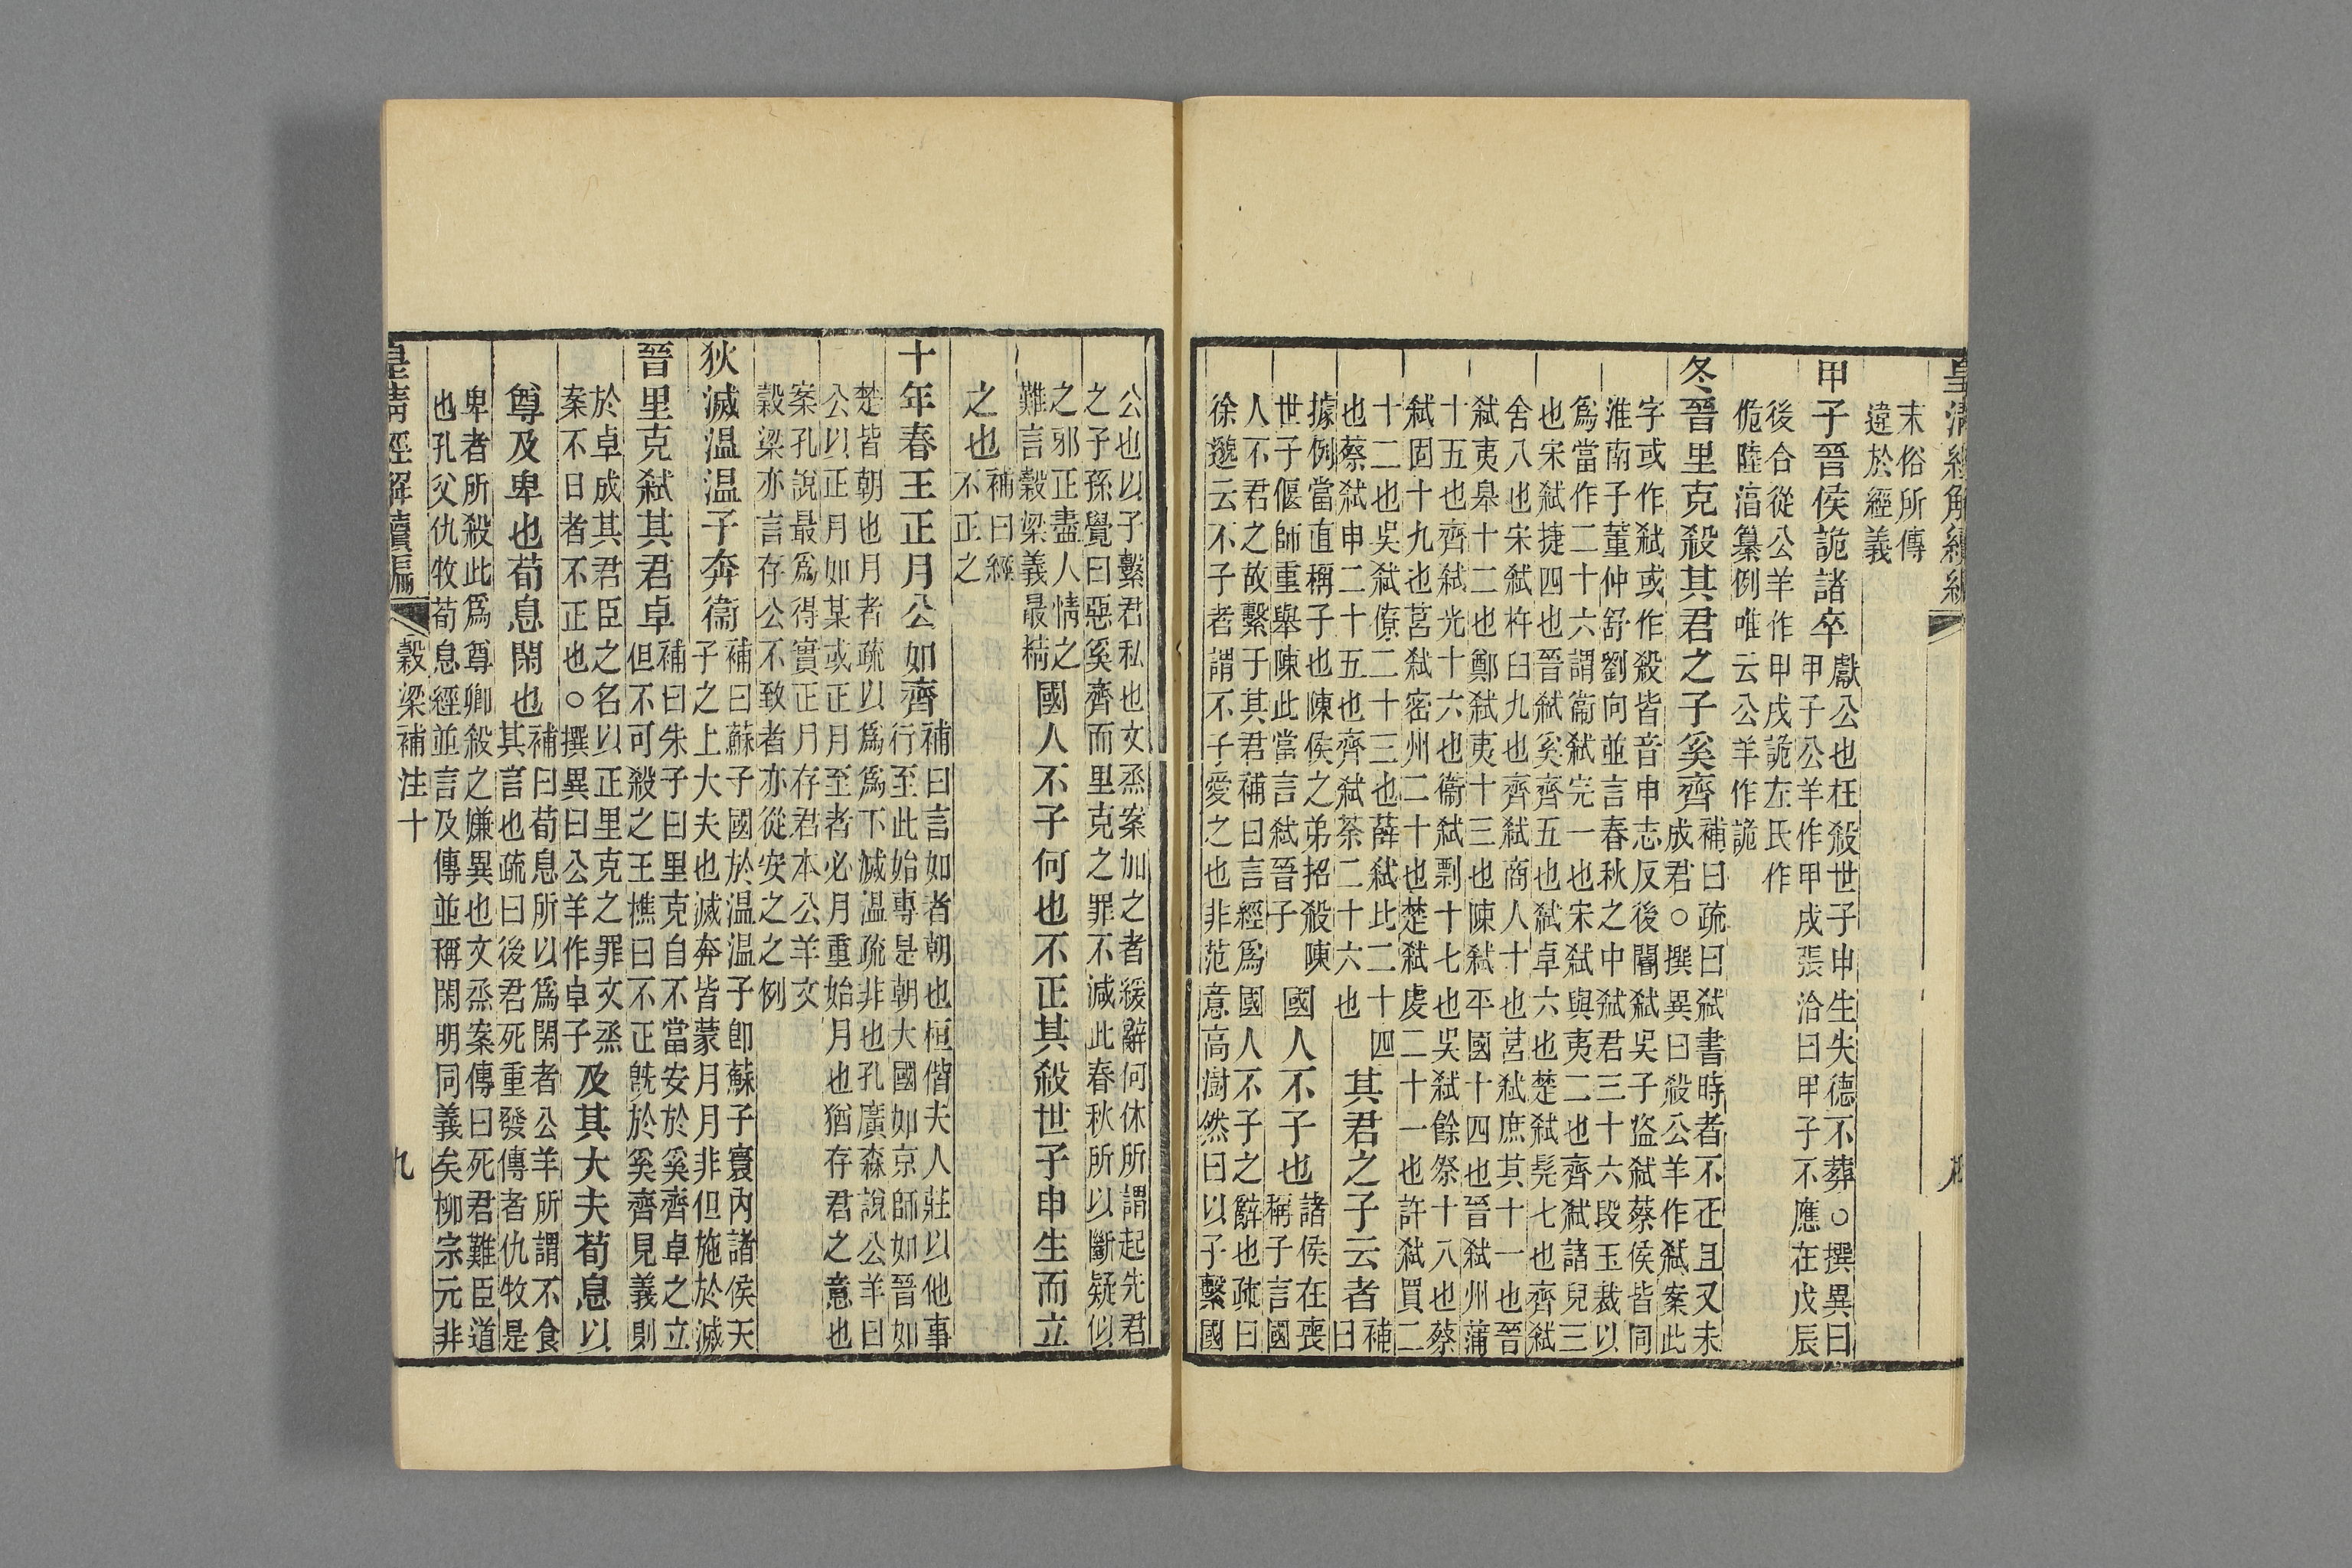 末俗所傳
違於經義
甲子晉侯詭諸卒
獻公也枉殺世子申生失德不葬○撰異曰
甲子公羊作甲戌張洽曰甲子不應在戊辰
後合從公羊作甲戌詭左氏作
佹陸淳纂例唯云公羊作詭
冬晉里克殺其君之子奚齊
補曰疏曰弑書時者不正且又未
成君○撰異曰殺公羊作弑案此
字或作弑或作殺皆音申志反後閽弑吳子盜弑蔡侯皆同
淮南子董仲舒劉向並言春秋之中弑君三十六段玉裁以
爲當作二十六謂衞弑完一也宋弑與夷二也齊弑諸兒三
也宋弑捷四也晉弑奚齊五也弑卓六也楚弑髡七也齊弑
舍八也宋弑杵臼九也齊弑商人十也莒弑庶其十一也晉
弑夷皋十二也鄭弑夷十三也陳弑平國十四也晉弑州蒲
十五也齊弑光十六也衞弑剽十七也吳弑餘祭十八也蔡
弑固十九也莒弑密州二十也楚弑虔二十一也許弑買二
十二也吳弑僚二十三也薛弑比二十四
也蔡弑申二十五也齊弑荼二十六也
其君之子云者
補
曰
據例當直稱子也陳侯之弟招殺陳
世子偃師重舉陳此當言弑晉子
國人不子也
諸侯在喪
稱子言國
人不君之故繫于其君補曰言經爲國人不子之辭也疏曰
徐邈云不子者謂不子愛之也非范意高澍然曰以子繫國
公也以子繫君私也文烝案加之者緩辭何休所謂起先君
之子孫覺曰惡奚齊而里克之罪不減此春秋所以斷疑似
之邪正盡人情之
難言穀梁義最精
國人不子何也不正其殺世子申生而立
之也
補曰經
不正之
十年春王正月公如齊
補曰言如者朝也桓偕夫人莊以他事
行至此始專是朝大國如京師如晉如
楚皆朝也月者疏以爲爲下滅溫疏非也孔廣森說公羊曰
公以正月如某或正月至者必月重始月也猶存君之意也
案孔說最爲得實正月存君本公羊文
穀梁亦言存公不致者亦從安之之例
狄滅温温子奔衞
補曰蘇子國於温温子卽蘇子寰內諸侯天
子之上大夫也滅奔皆蒙月月非但施於滅
晉里克弑其君卓
補曰朱子曰里克自不當安於奚齊卓之立
但不可殺之王樵曰不正旣於奚齊見義則
於卓成其君臣之名以正里克之罪文烝
案不日者不正也○撰異曰公羊作卓子
及其大夫荀息以
尊及卑也荀息閑也
補曰荀息所以爲閑者公羊所謂不食
其言也疏曰後君死重發傳者仇牧是
卑者所殺此爲尊卿殺之嫌異也文烝案傳曰死君難臣道
也孔父仇牧荀息經並言及傳並稱閑明同義矣柳宗元非
皇清經解續編
穀梁補注十
九